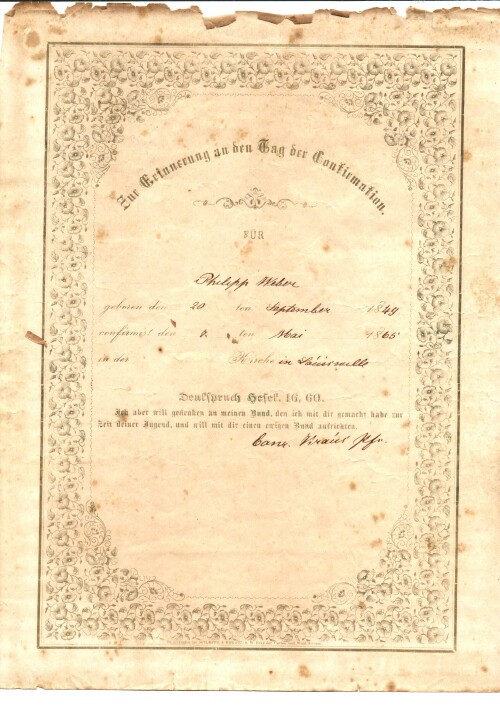 Zur Erinnerung an den Tag der Confirmation.
FÜR
Philipp Weber
geboren den 20 ten September 1849
confirmirt den 7. ten Mai 1865
in der Kirche in Louisville
Denkspruch Hesek. 16, 60.
Ich aber will gedenken an meinen Bund, den ich mit dir gemacht habe zur
Zeit deiner Jugend, und will mit dir einen ewigen Bund aufrichten.
Pfr.